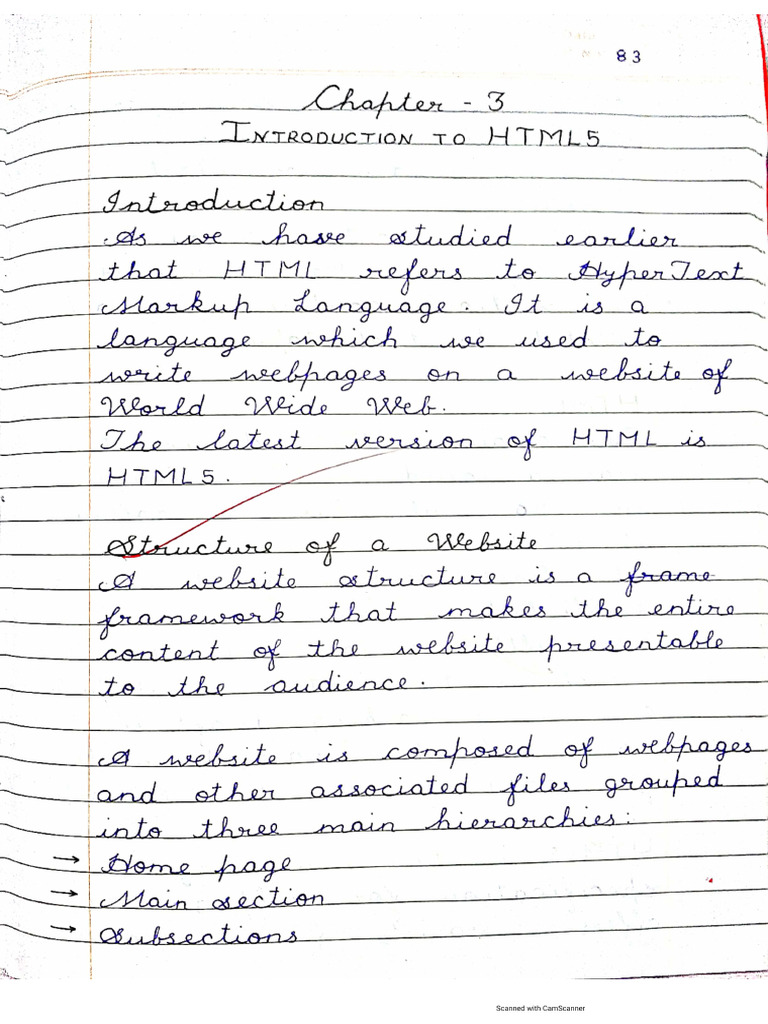 83
Chapter - 3
INTRODUCTION TO HTML5
Introduction
As we have studied earlier
that HTML refers to HyperText
Markup Language. It is a
language which we used to
write webpages on a website of
World Wide Web.
The latest version of HTML is
HTML5.
Structure of a Website
A website structure is a frame
framework that makes the entire
content of the website presentable
to the audience.
A website is composed of webpages
and other associated files grouped
into three main hierarchies:
→ Home page
→ Main section
→ Subsections
Scanned with CamScanner